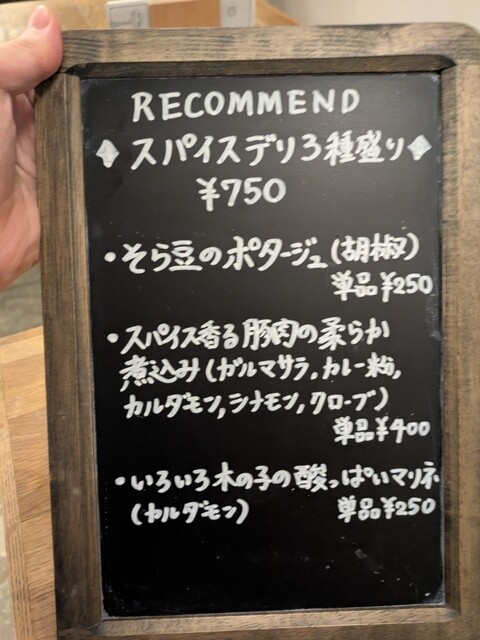 RECOMMEND
スパイスデリ3種盛り
¥750
・そら豆のポタージュ(胡椒)
単品¥250
・スパイス香る豚肉の柔らか
煮込み(ガルマサラ,カレー粉,
カルダモン,シナモン,クローブ)
単品¥400
・いろいろ木の子の酸っぱいマリネ
(カルダモン) 単品¥250